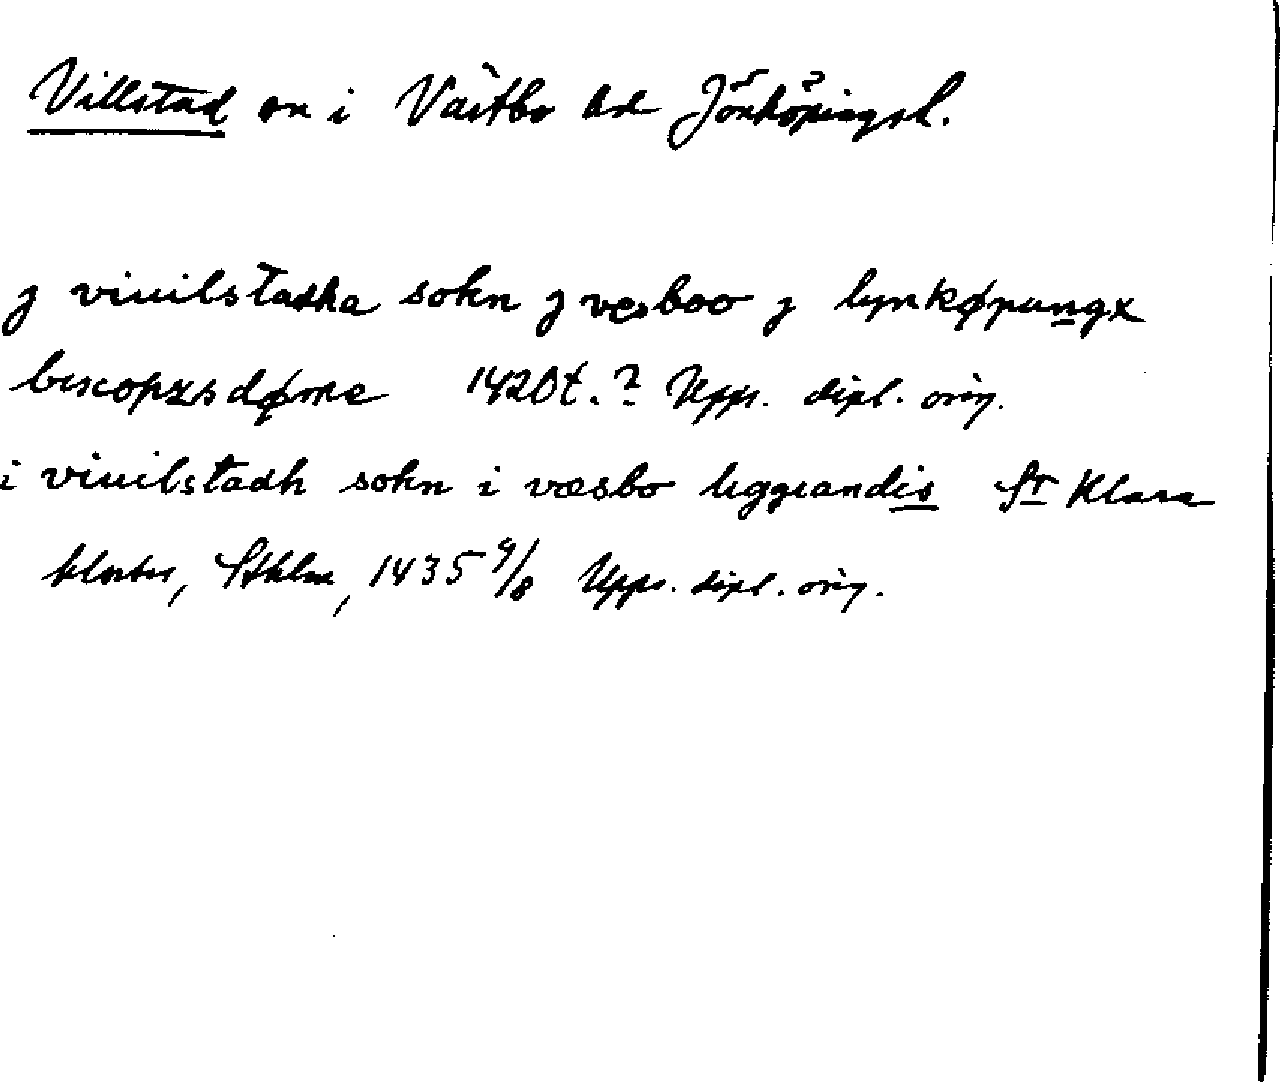 Villstad sn i Västbo hd Jönköpingsl.
j viuilstadha sokn j vesboo j lynkøpungx
bescopzsdøme 1420t.? Upps. dipl. orig.
i viuilstadh sokn i væsbo liggiandis St Klara
kloster, Sthlm, 1435 9/8 Upps. dipl. orig.